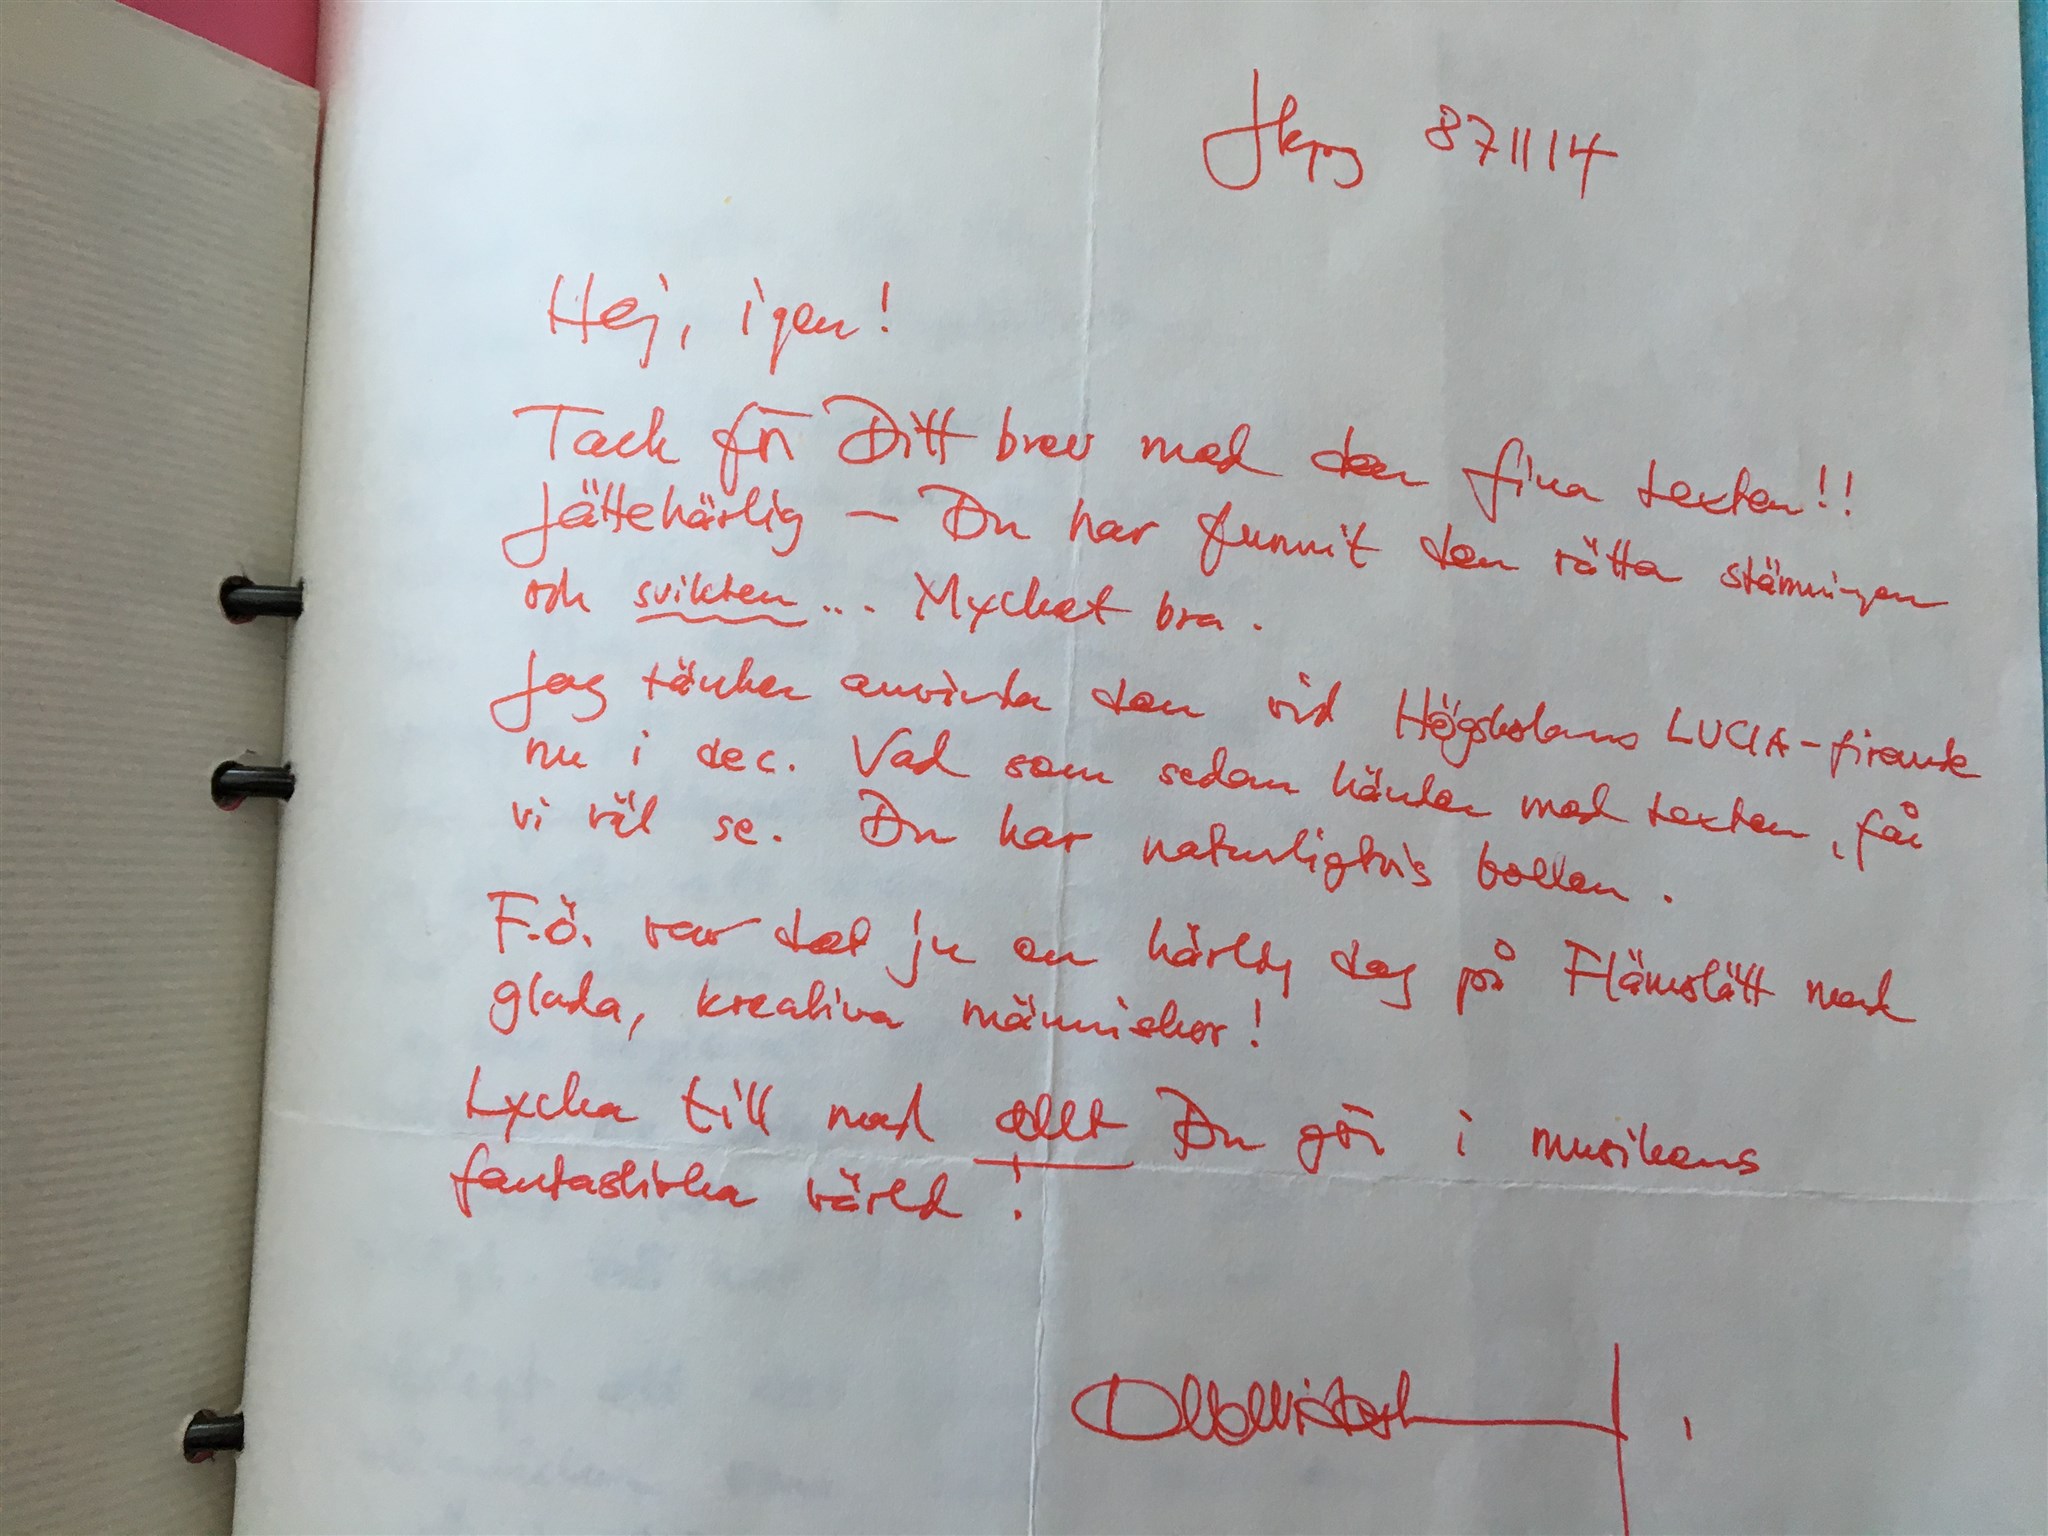 Jkpg 871114
Hej, igen!
Tack för Ditt brev med den fina texten!!
Jättehärlig – Du har funnit den rätta stämningen
och svikten... Mycket bra.
Jag tänker använda den vid Högskolans LUCIA-firande
nu i dec. Vad som sedan händer med texten, får
vi väl se. Du har naturligtvis bollen.
F.ö. var det ju en härlig dag på Flämslätt med
glada, kreativa människor!
Lycka till med allt Du gör i musikens
fantastiska värld!